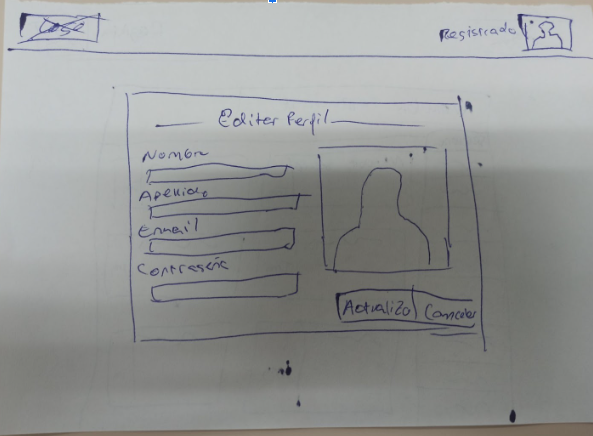 Registrado
Editar Perfil
Nombre
Apellido
Email
Contraseña
Actualizo Cancelar